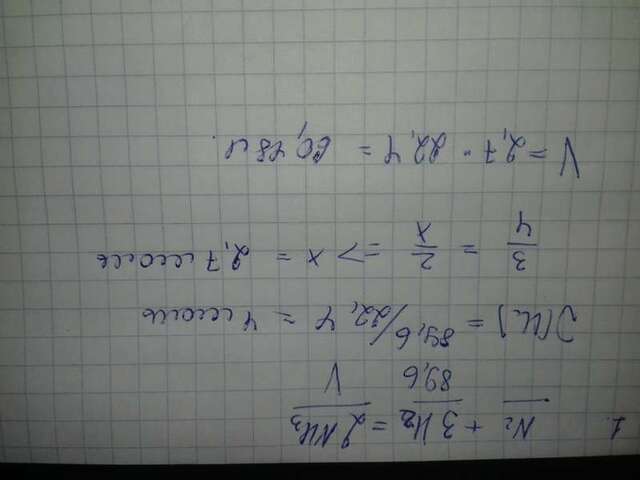 1. N₂ + 3H₂ = 2NH₃
89,6 V
ν(H₂) = 89,6/22,4 = 4 моль
3/4 = 2/x => x = 2,7 моль
V = 2,7 · 22,4 = 60,48 л.